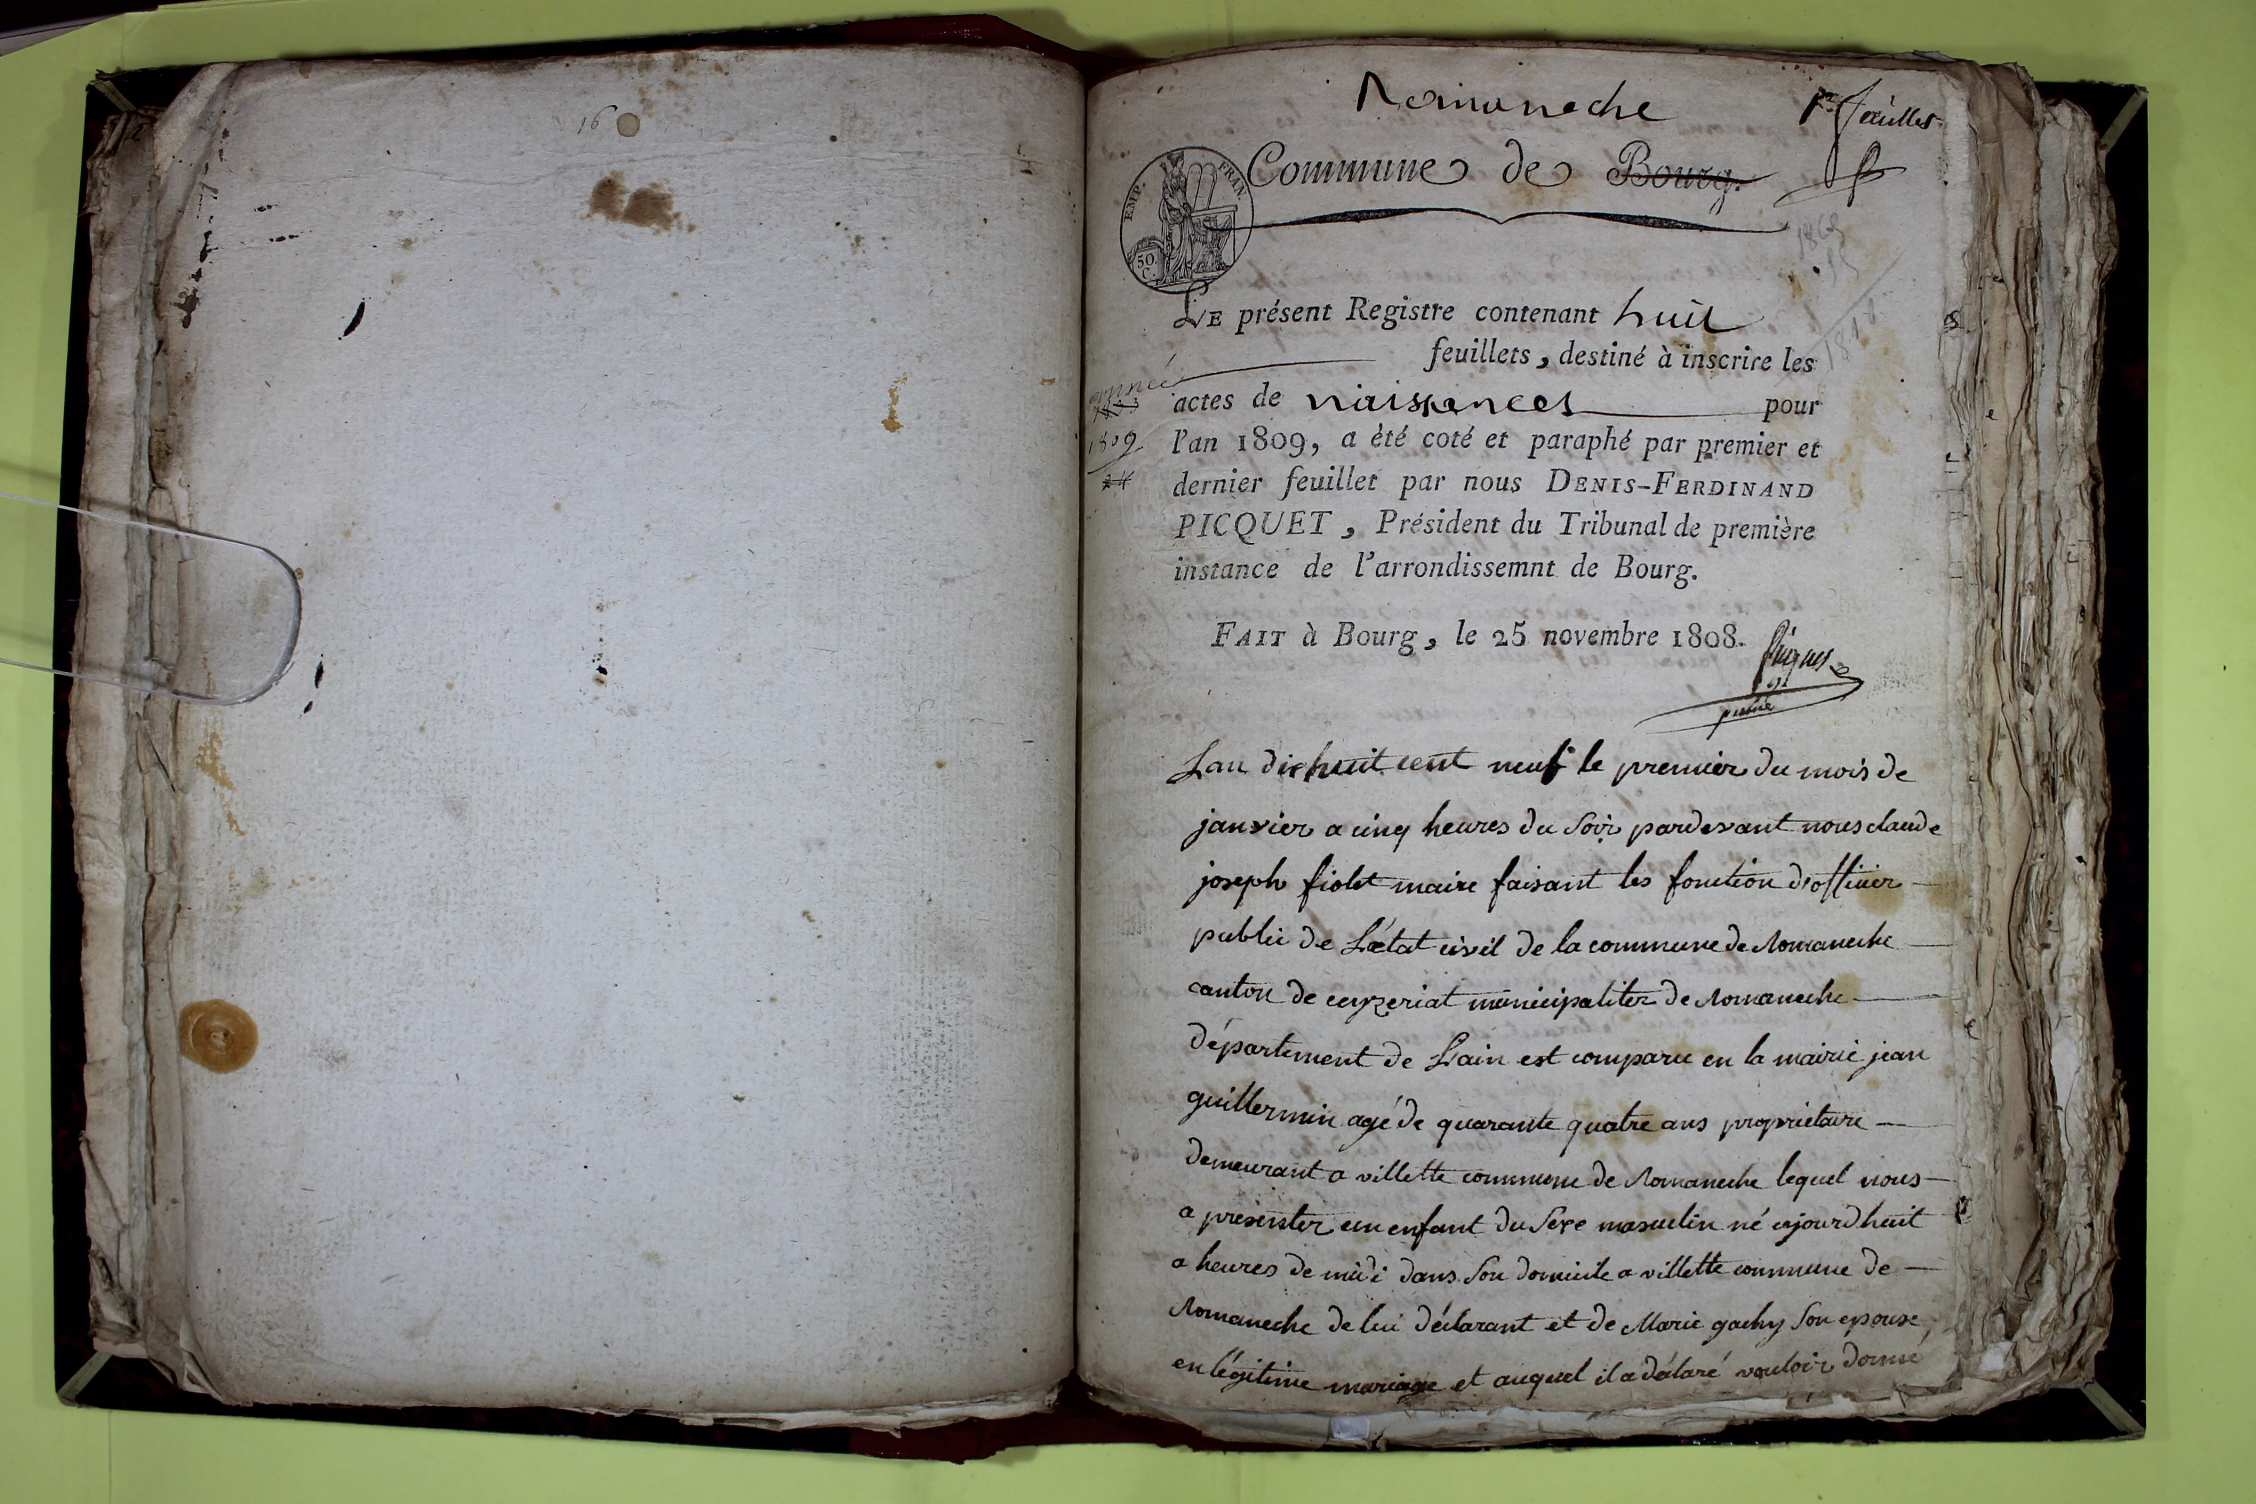 16
Romaneche
1er feuillet
Commune de Bourg.
EMP. FRAN.
50 C.
LE présent Registre contenant huit
feuillets, destiné à inscrire les
année
actes de naissances pour
1809
l'an 1809, a èté coté et paraphé par premier et
dernier feuillet par nous DENIS-FERDINAND
PICQUET, Président du Tribunal de première
instance de l'arrondissemnt de Bourg.
FAIT à Bourg, le 25 novembre 1808.
Picquet
Lan dix huit cent neuf le premier du mois de
janvier a cinq heures du Soir pardevant nous claude
joseph fiolet maire faisant les fonction d'officier
public de L'etat civil de la commune de Romaneche
canton de ceyzeriat municipaliter de Romaneche
département de Lain est comparu en la mairie jean
guillermin agé de quarante quatre ans proprietaire
demeurant a villette commune de Romaneche lequel nous
a presenter un enfant du Sexe masculin né ajourdhuit
a heures de midi dans Son domicile a villette commune de
Romaneche de lui déclarant et de Marie gachy Son epouse
en légitime mariage et auquel il a déclaré vouloir donné